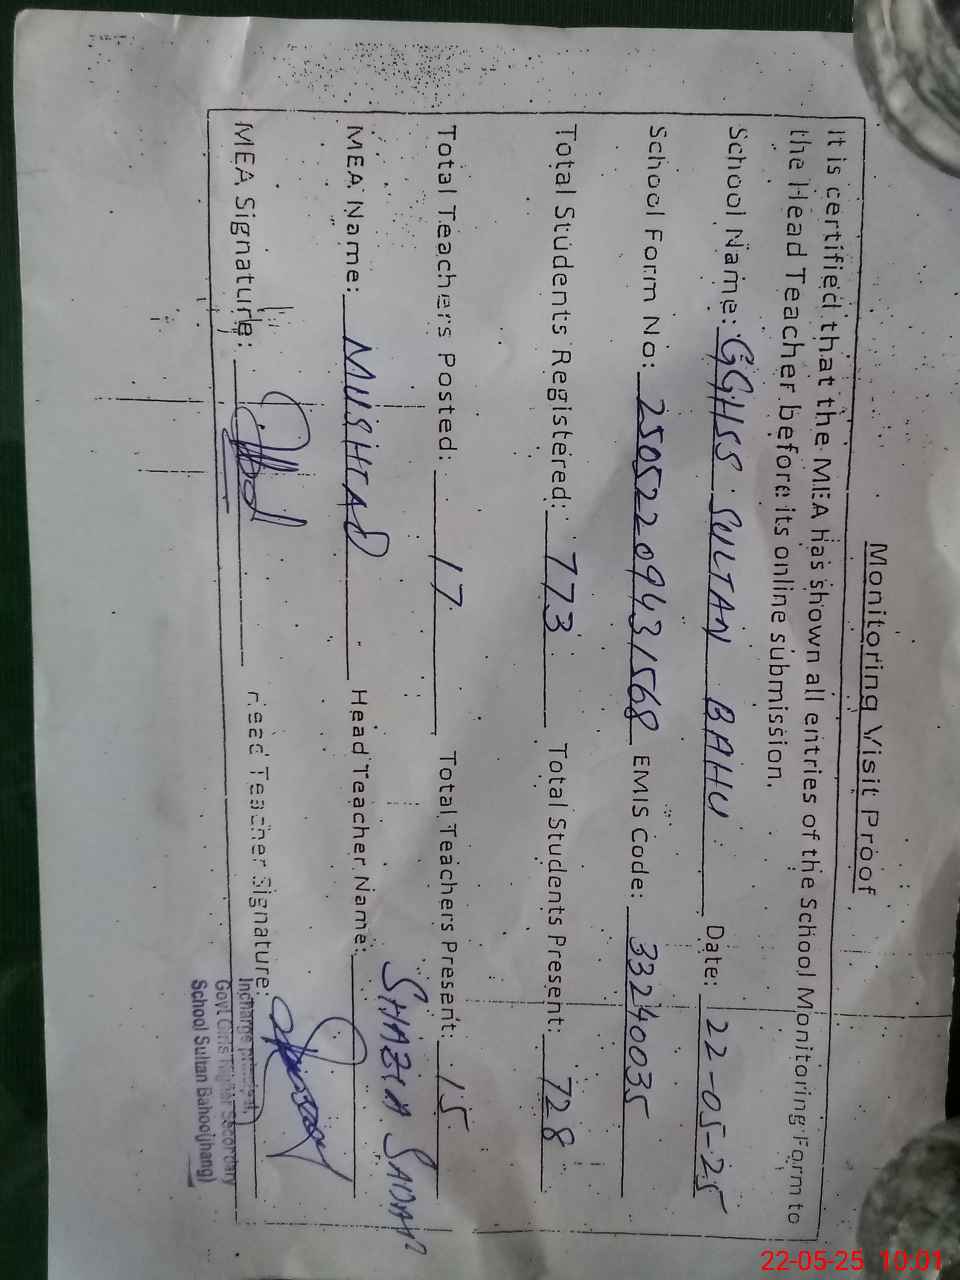 Monitoring Visit Proof
It is certified that the MEA has shown all entries of the School Monitoring Form to
the Head Teacher before its online submission.
School Name: GGHSS SULTAN BAHU Date: 22-05-25
School Form No: 25052209431568 EMIS Code: 33240035
Total Students Registered: 773 Total Students Present: 728
Total Teachers Posted: 17 Total Teachers Present: 15
MEA Name: MUSHTAQ Head Teacher Name: SHAZIA SADAF
MEA Signature: Head Teacher Signature:
Incharge principal,
Govt Girls Higher Secondary
School Sultan Bahoo(jhang)
22-05-25 10:01